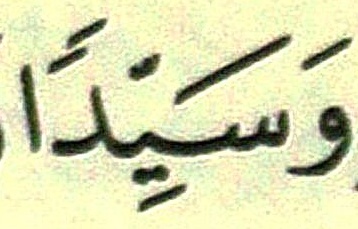 وَسَيِّدًا